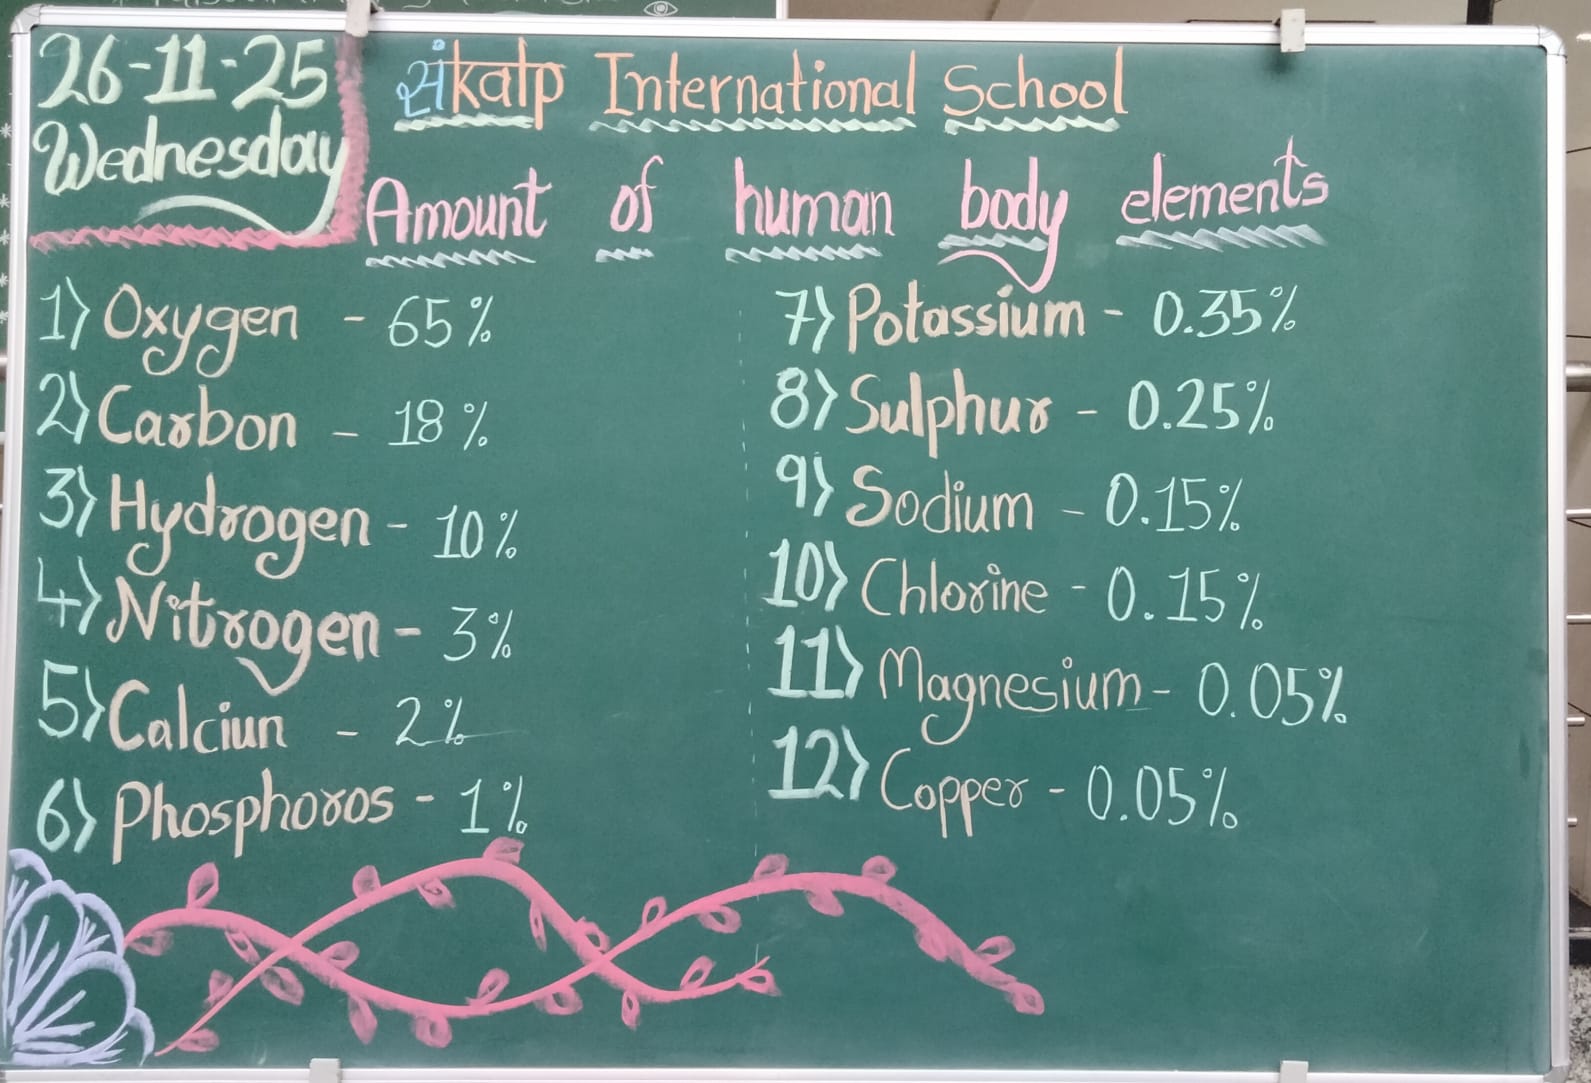 26-11-25
Wednesday
संkalp International School
Amount of human body elements
1) Oxygen - 65%
2) Carbon - 18%
3) Hydrogen - 10%
4) Nitrogen - 3%
5) Calciun - 2%
6) Phosphoros - 1%
7) Potassium - 0.35%
8) Sulphur - 0.25%
9) Sodium - 0.15%
10) Chlorine - 0.15%
11) Magnesium - 0.05%
12) Copper - 0.05%